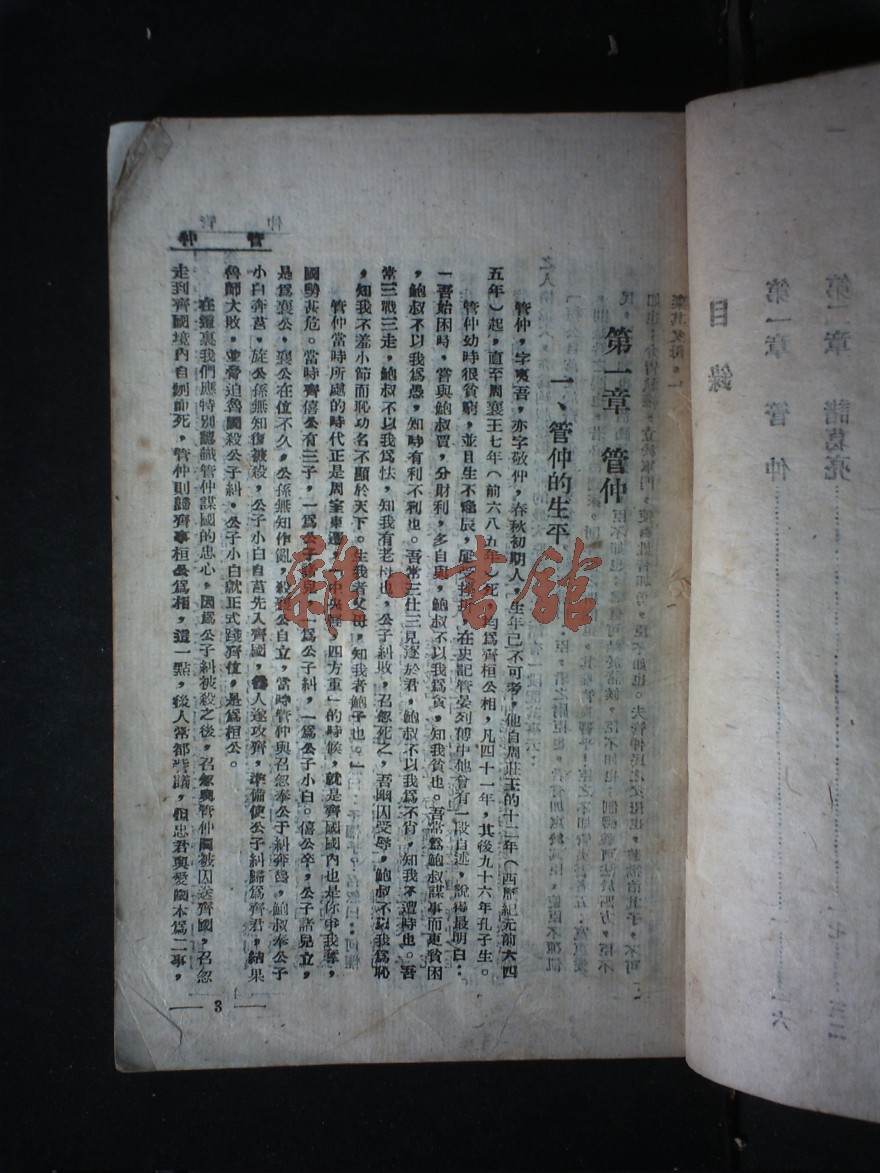 管仲
第一章 管仲
一、管仲的生平
管仲，字夷吾，亦字敬仲，春秋初期人，生年已不可考，他自周莊王的十二年（西歷紀元前六四
五年）起，直至周襄王七年（前六八五年）死，均為齊桓公相，凡四十一年，其後九十六年孔子生。
管仲幼時很貧窮，並且生不逢辰，屢受挫折，在史記管晏列傳中他曾有一段自述，說得最明白：
「吾始困時，嘗與鮑叔賈，分財利，多自與，鮑叔不以我為貪，知我貧也。吾常為鮑叔謀事而更貧困
，鮑叔不以我為愚，知時有利不利也。吾常三仕三見逐於君，鮑叔不以我為不肖，知我不遭時也。吾
常三戰三走，鮑叔不以我為怯，知我有老母也，公子糾敗，召忽死之，吾幽囚受辱，鮑叔不以我為恥
，知我不羞小節而恥功名不顯於天下。生我者父母，知我者鮑子也。」
管仲當時所處的時代正是周室東遷，「中央輕，四方重」的時候，就是齊國國內也是你爭我奪，
國勢甚危。當時齊僖公有三子，一為公子諸兒，一為公子糾，一為公子小白。僖公卒，公子諸兒立，
是為襄公，襄公在位不久，公孫無知作亂，殺襄公自立，當時管仲與召忽奉公子糾奔魯，鮑叔奉公子
小白奔莒，旋公孫無知復被殺，公子小白自莒先入齊國，魯人遂攻齊，準備使公子糾歸為齊君，結果
魯師大敗，並脅迫魯國殺公子糾，公子小白就正式踐齊位，是為桓公。
在這裏我們應特別認識管仲謀國的忠心，因為公子糾被殺之後，召忽與管仲同被囚送齊國，召忽
走到齊國境內自刎而死，管仲則歸齊事桓公為相，這一點，後人常都訾議，但忠君與愛國本為二事，
3
目錄
第一章 管仲
第二章 諸葛亮
雜·書館